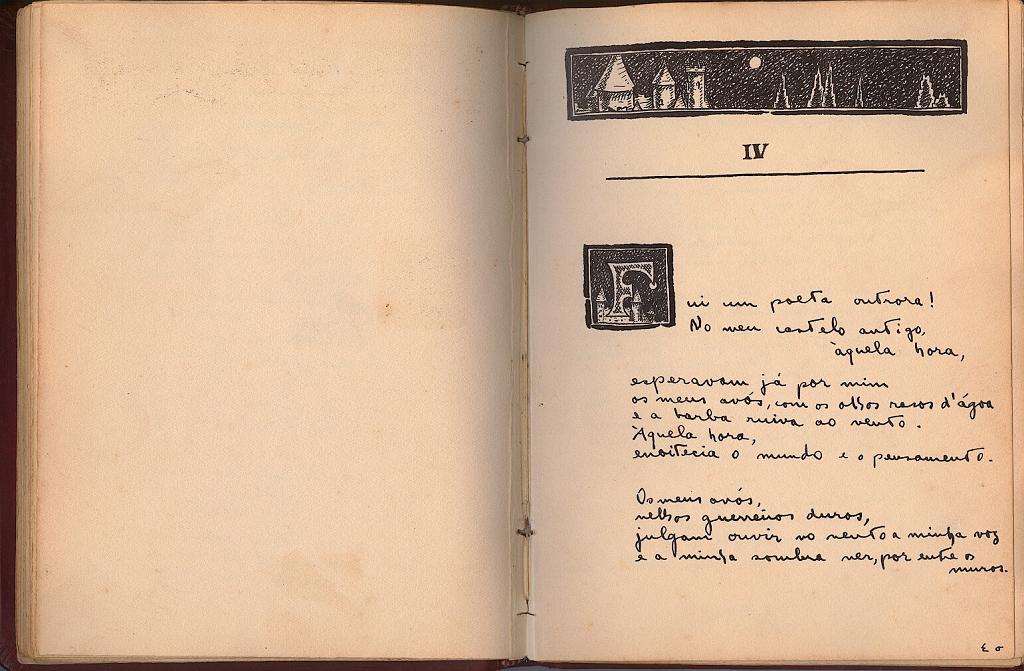 IV
Fui um poeta outrora!
No meu castelo antigo,
àquela hora,
esperavam já por mim
os meus avós, com os olhos rasos d'água
e a barba ruiva ao vento.
Àquela hora,
enoitecia o mundo e o pensamento.
Os meus avós,
velhos guerreiros duros,
julgam ouvir no vento a minha voz
e a minha sombra ver, por entre os
muros.